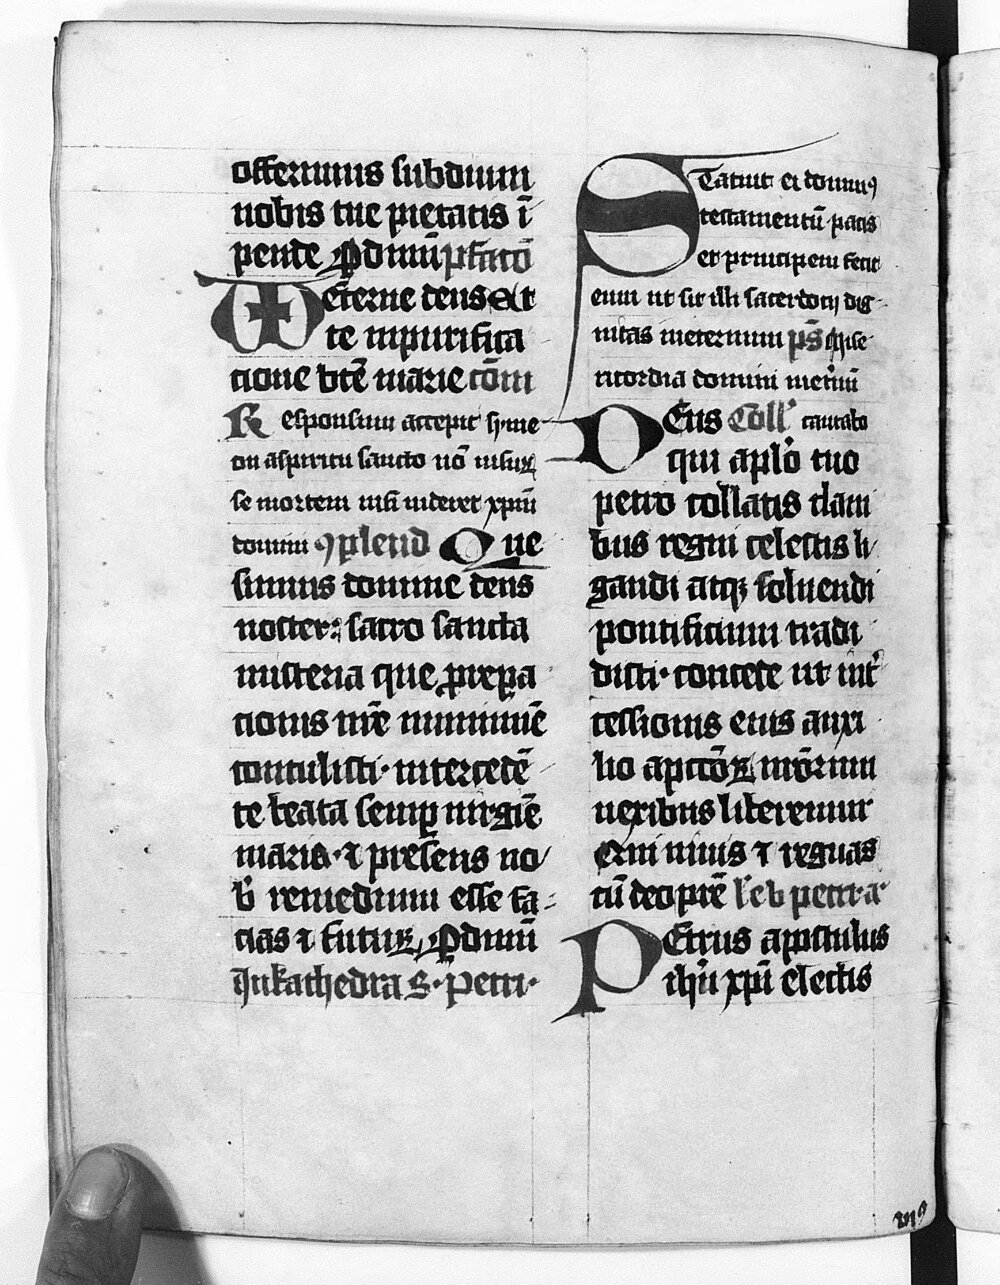 offerimus subdium
nobis tue pietatis ī
pende P dn̄m p̄fatō
eterne deus Et
te in purifica
tione bt̄e marie cōm
Responsum accepit syme
on a spiritu sancto nō visuꝝ
se mortem nisi videret xp̄m
domini ꝯplend Que
sumus domine deus
noster: sacro sancta
misteria que ꝓ repa
tionis nr̄e munimīe
contulisti· intercedē
te beata semꝑ virgīe
maria· ⁊ presens no
b̓ remedium esse fa
cias ⁊ futuꝝ P dn̄m
In kathedra S· Petri·
Statuit ei dominꝰ
testamentū pacis
et principem fecit
eum ut sit illi sacerdotij dig
nitas in eternum pꝭ Mise
ricordia domini in et̓nū
DEus Coll̓ cantato
qui apl̓o tuo
petro collatis clavi
bus regni celestis li
gandi atqꝫ solvendi
pontificium tradi
disti· concede ut int̓
cessionis eius auxi
lio a pcc̄oꝝ nr̄orum
nexibus liberemur
Qui vivis ⁊ regnas
cū deo pr̄e l̓c̄ b̓ petri· a·
PEtrus apostulus
ihū xp̄i electis